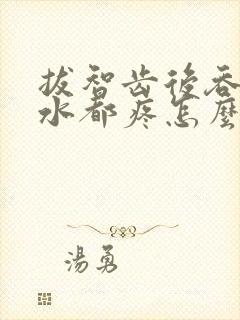 拔智齿後吞
水都疼怎麼
湯勇